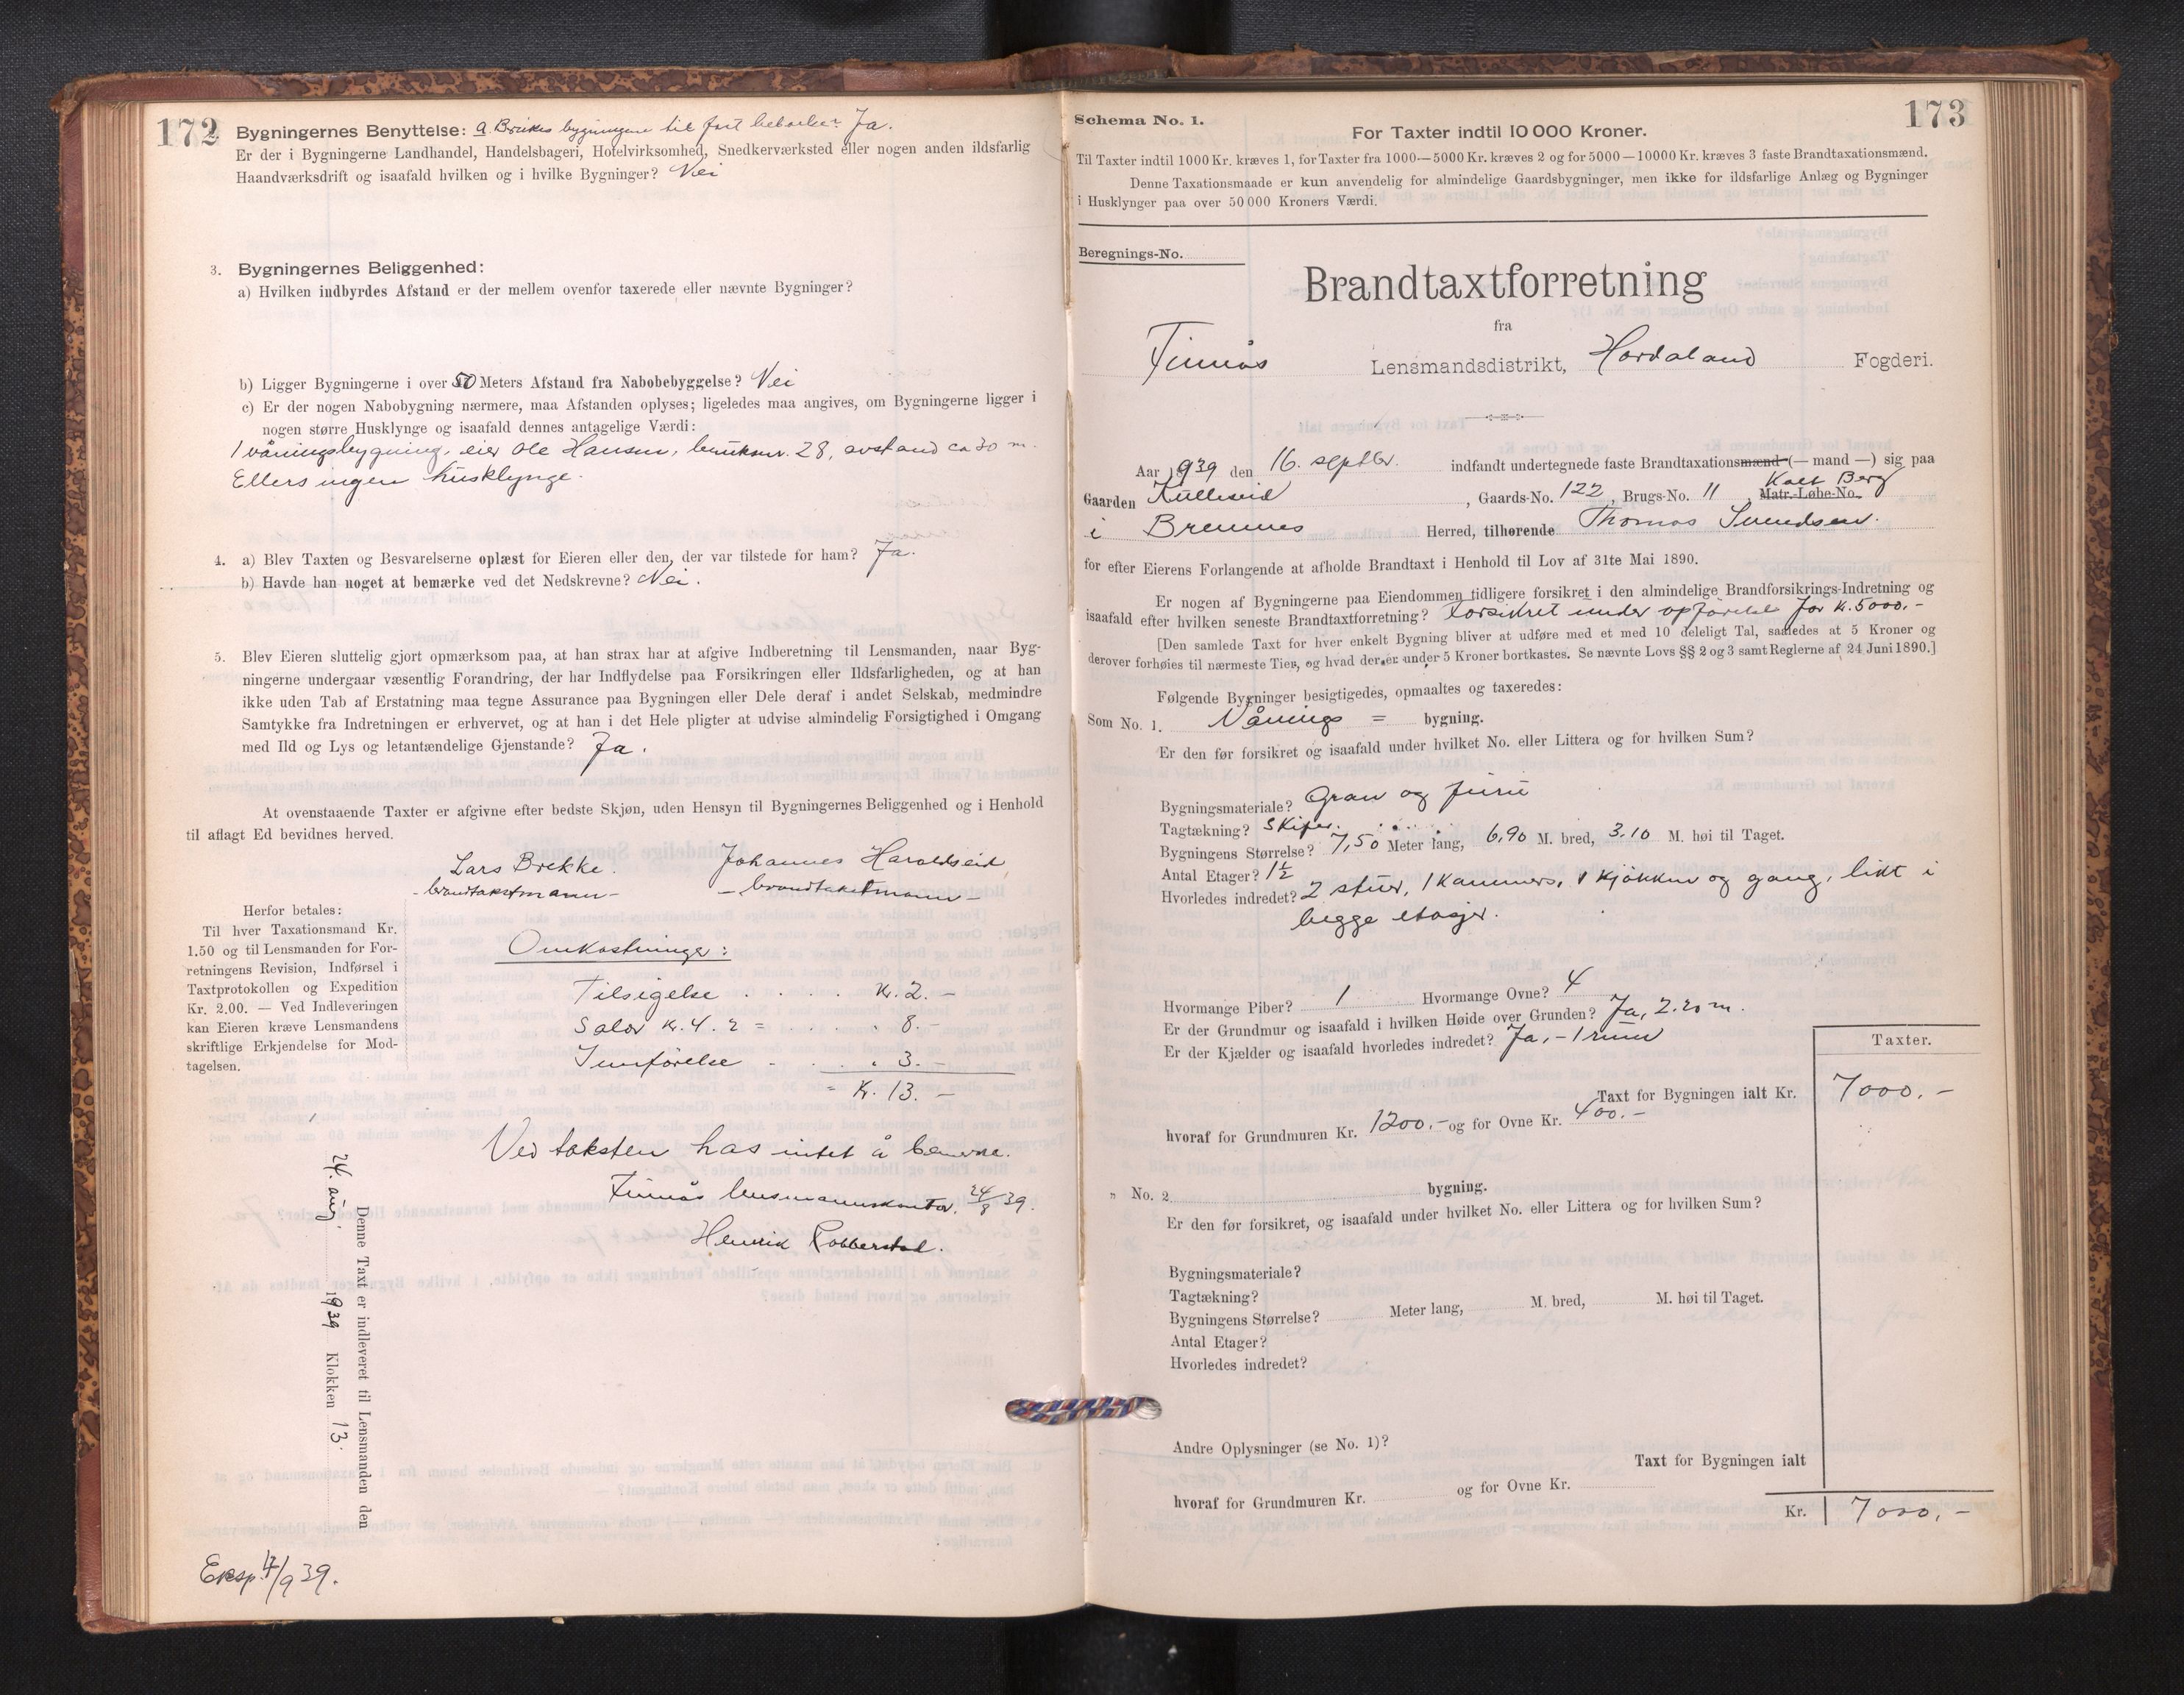 172
Bygningernes Benyttelse: a. Brukes bygningene til fast beboelse? Ja.
Er der i Bygningerne Landhandel, Handelsbageri, Hotelvirksomhed, Snedkerværksted eller nogen anden ildsfarlig
Haandværksdrift og isaafald hvilken og i hvilke Bygninger? Nei
3. Bygningernes Beliggenhed:
a) Hvilken indbyrdes Afstand er der mellem ovenfor taxerede eller nævnte Bygninger?
b) Ligger Bygningerne i over 50 Meters Afstand fra Nabobebyggelse? Nei
c) Er der nogen Nabobygning nærmere, maa Afstanden oplyses; ligeledes maa angives, om Bygningerne ligger i
nogen større Husklynge og isaafald dennes antagelige Værdi:
1 våningsbygning, eier Ole Hansen, bruksnr. 28, avstand ca 30 m.
Ellers ingen husklynge.
4. a) Blev Taxten og Besvarelserne oplæst for Eieren eller den, der var tilstede for ham? Ja.
b) Havde han noget at bemærke ved det Nedskrevne? Nei.
5. Blev Eieren sluttelig gjort opmærksom paa, at han strax har at afgive Indberetning til Lensmanden, naar Byg-
ningerne undergaar væsentlig Forandring, der har Indflydelse paa Forsikringen eller Ildsfarligheden, og at han
ikke uden Tab af Erstatning maa tegne Assurance paa Bygningen eller Dele deraf i andet Selskab, medmindre
Samtykke fra Indretningen er erhvervet, og at han i det Hele pligter at udvise almindelig Forsigtighed i Omgang
med Ild og Lys og letantændelige Gjenstande? Ja.
At ovenstaaende Taxter er afgivne efter bedste Skjøn, uden Hensyn til Bygningernes Beliggenhed og i Henhold
til aflagt Ed bevidnes herved.
Lars Brekke. Johannes Haraldseid
- brandtakstmann - - brandtakstmann -
Herfor betales:
Til hver Taxationsmand Kr.
1.50 og til Lensmanden for For-
retningens Revision, Indførsel i
Taxtprotokollen og Expedition
Kr. 2.00. — Ved Indleveringen
kan Eieren kræve Lensmandens
skriftlige Erkjendelse for Mod-
tagelsen.
Omkostninger:
Tilsigelse . . . . . kr. 2. -
Salær kr. 4. 2 = . . . . 8. -
Innførelse . . . . 3. -
= Kr. 13. -
Ved taksten has intet å bemerke.
Finnås lensmannskontor, 24/8 39.
Henrik Robberstad.
Denne Taxt er indleveret til Lensmanden den
24. aug. 1939 Klokken 13.
Eksp. 17/9 39.
173
Schema No. 1.
For Taxter indtil 10 000 Kroner.
Til Taxter indtil 1000 Kr. kræves 1, for Taxter fra 1000—5000 Kr. kræves 2 og for 5000—10000 Kr. kræves 3 faste Brandtaxationsmænd.
Denne Taxationsmaade er kun anvendelig for almindelige Gaardsbygninger, men ikke for ildsfarlige Anlæg og Bygninger
i Husklynger paa over 50 000 Kroners Værdi.
Beregnings-No.
Brandtaxtforretning
fra
Finnås Lensmandsdistrikt, Hordaland Fogderi.
Aar 1939 den 16. septbr. indfandt undertegnede faste Brandtaxationsmænd (— mand —) sig paa
Gaarden Kulleseid, Gaards-No. 122, Brugs-No. 11, Matr.-Løbe-No. Kalt Berg
i Bremnes Herred, tilhørende Thomas Svendsen.
for efter Eierens Forlangende at afholde Brandtaxt i Henhold til Lov af 31te Mai 1890.
Er nogen af Bygningerne paa Eiendommen tidligere forsikret i den almindelige Brandforsikrings-Indretning og
isaafald efter hvilken seneste Brandtaxtforretning? Forsikret under opførelse for k. 5000.-
[Den samlede Taxt for hver enkelt Bygning bliver at udføre med et med 10 deleligt Tal, saaledes at 5 Kroner og
derover forhøies til nærmeste Tier, og hvad der er under 5 Kroner bortkastes. Se nævnte Lovs §§ 2 og 3 samt Reglerne af 24 Juni 1890.]
Følgende Bygninger besigtigedes, opmaaltes og taxeredes:
Som No. 1. Vånings = bygning.
Er den før forsikret og isaafald under hvilket No. eller Littera og for hvilken Sum?
Bygningsmateriale? Gran og furu
Tagtækning? Skifer.
Bygningens Størrelse? 7,50 Meter lang, 6,90 M. bred, 3.10 M. høi til Taget.
Antal Etager? 1½
Hvorledes indredet? 2 stuer, 1 kammers, 1 kjøkken og gang, likt i
begge etasjer.
Hvormange Piber? 1 Hvormange Ovne? 4
Er der Grundmur og isaafald i hvilken Høide over Grunden? Ja, 2.20 m.
Er der Kjælder og isaafald hvorledes indredet? Ja, - 1 rum
Taxter.
Taxt for Bygningen ialt Kr. 7000.-
hvoraf for Grundmuren Kr. 1200.- og for Ovne Kr. 400.-
„ No. 2 bygning.
Er den før forsikret, og isaafald under hvilket No. eller Littera og for hvilken Sum?
Bygningsmateriale?
Tagtækning?
Bygningens Størrelse? Meter lang, M. bred, M. høi til Taget.
Antal Etager?
Hvorledes indredet?
Andre Oplysninger (se No. 1)?
Taxt for Bygningen ialt
hvoraf for Grundmuren Kr. og for Ovne Kr.
Kr. 7000.-